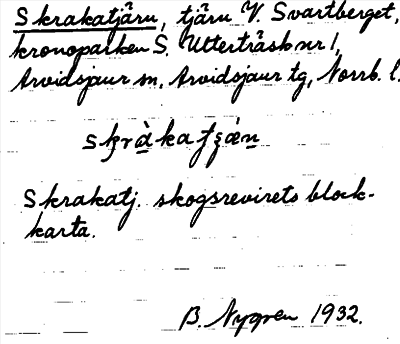 Skrakatjärn, tjärn V. Svartberget,
kronoparken S. Utterträsk nr 1,
Arvidsjaur sn, Arvidsjaur tg, Norrb. l.
Skrakatj. skogsrevirets block-
karta.
B. Nygren 1932.